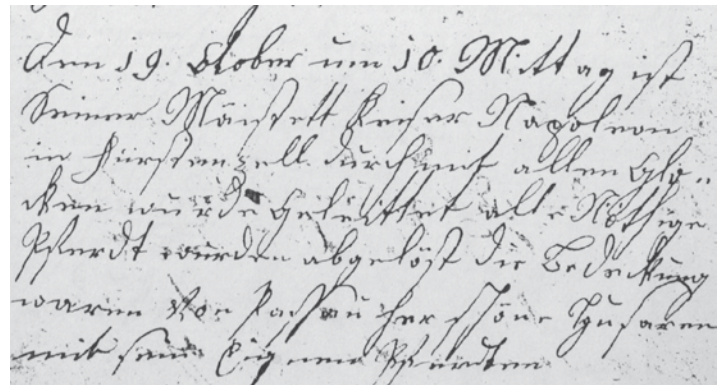 Den 19. Octtober um 10. Mittag ist
Seiner Mäistett Keiser Napoleon
in Fürstenzell durch mit allen Glo-
cken wurde Geleittet alle Nöthige
Pferdt wurden abgelöst die Bedeckung
waren von Passau her schöne Husaren
mit sein Eigene Pferdten